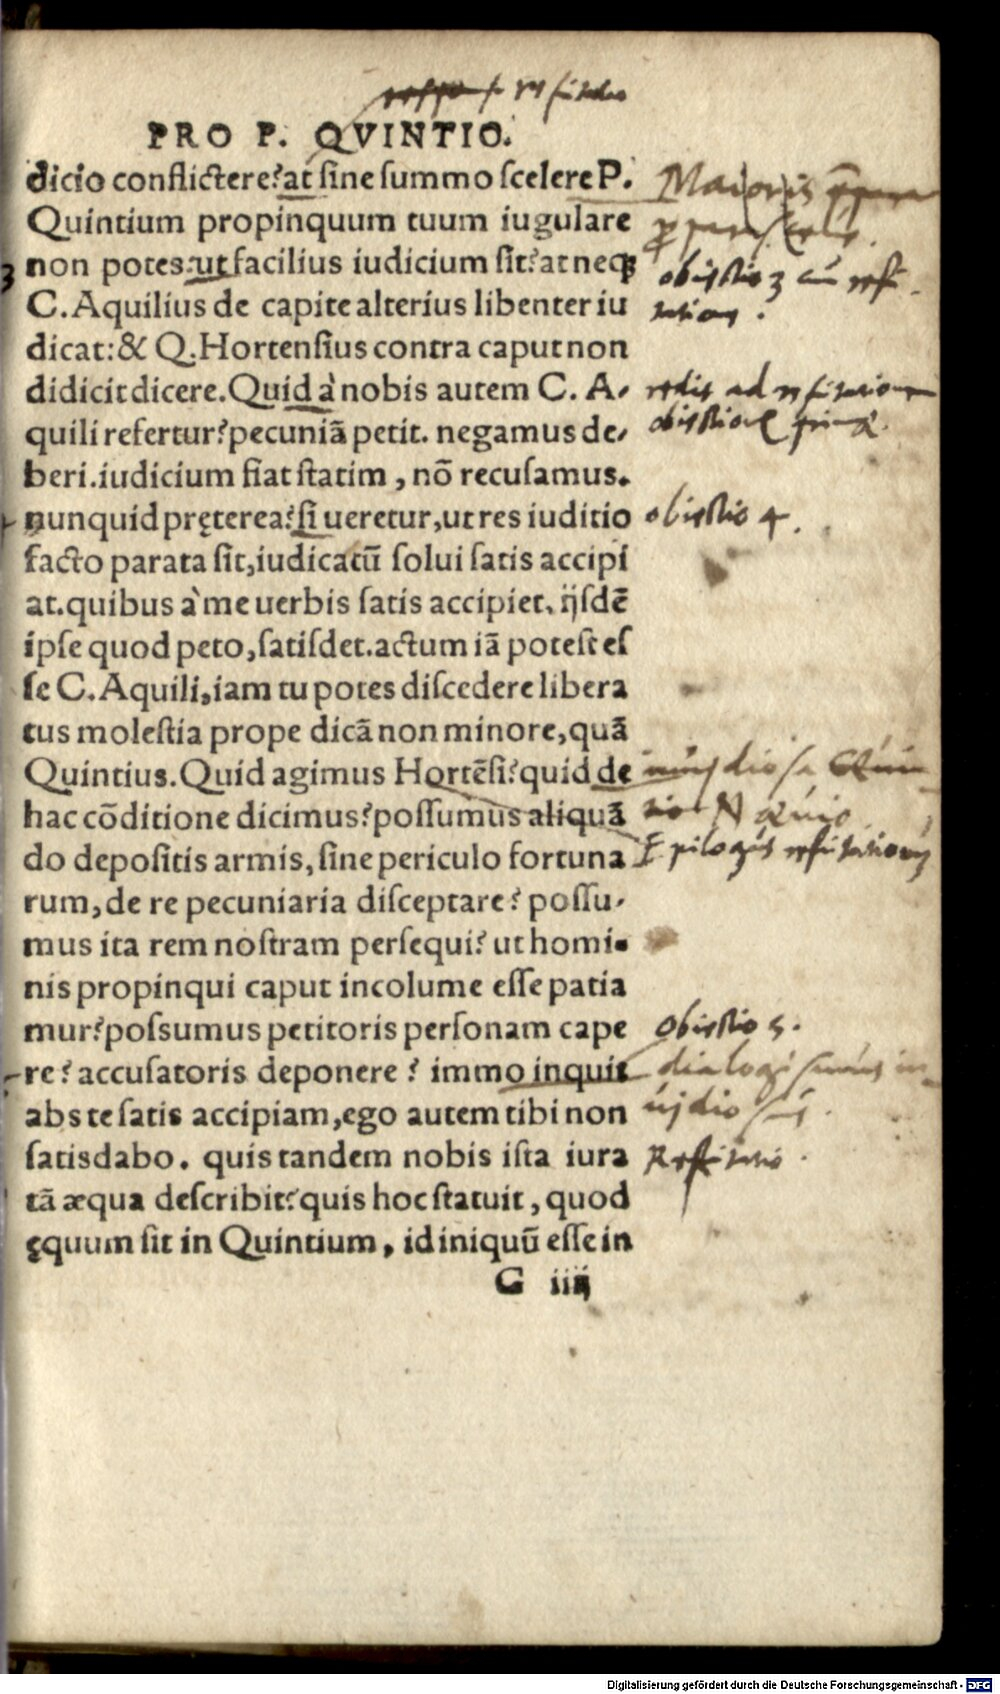 PRO P. QVINTIO.
dicio conflictere? at sine summo scelere P.
Quintium propinquum tuum iugulare
non potes: ut facilius iudicium sit? at neqꝫ
C. Aquilius de capite alterius libenter iu
dicat: & Q. Hortensius contra caput non
didicit dicere. Quid à nobis autem C. A-
quili refertur? pecuniā petit. negamus de-
beri. iudicium fiat statim, nō recusamus.
nunquid pręterea? si ueretur, ut res iuditio
facto parata sit, iudicatū solui satis accipi
at. quibus à me uerbis satis accipiet, ijsdē
ipse quod peto, satisdet. actum iā potest es
se C. Aquili, iam tu potes discedere libera
tus molestia prope dicā non minore, quā
Quintius. Quid agimus Hortēsi? quid de
hac cōditione dicimus? possumus aliquā
do depositis armis, sine periculo fortuna
rum, de re pecuniaria disceptare? possu-
mus ita rem nostram persequi? ut homi-
nis propinqui caput incolume esse patia
mur? possumus petitoris personam cape
re? accusatoris deponere? immo inquit
abs te satis accipiam, ego autem tibi non
satisdabo. quis tandem nobis ista iura
tā æqua describit? quis hoc statuit, quod
ęquum sit in Quintium, id iniquū esse in
G iiij
3
Maioris
obiectio 3 cū refu
tatione.
redit ad refutationem
obiectionis primæ
obiectio 4.
Epilogus refutationis
obiectio 5.
dialogismus
Refutatio
Digitalisierung gefördert durch die Deutsche Forschungsgemeinschaft - DFG